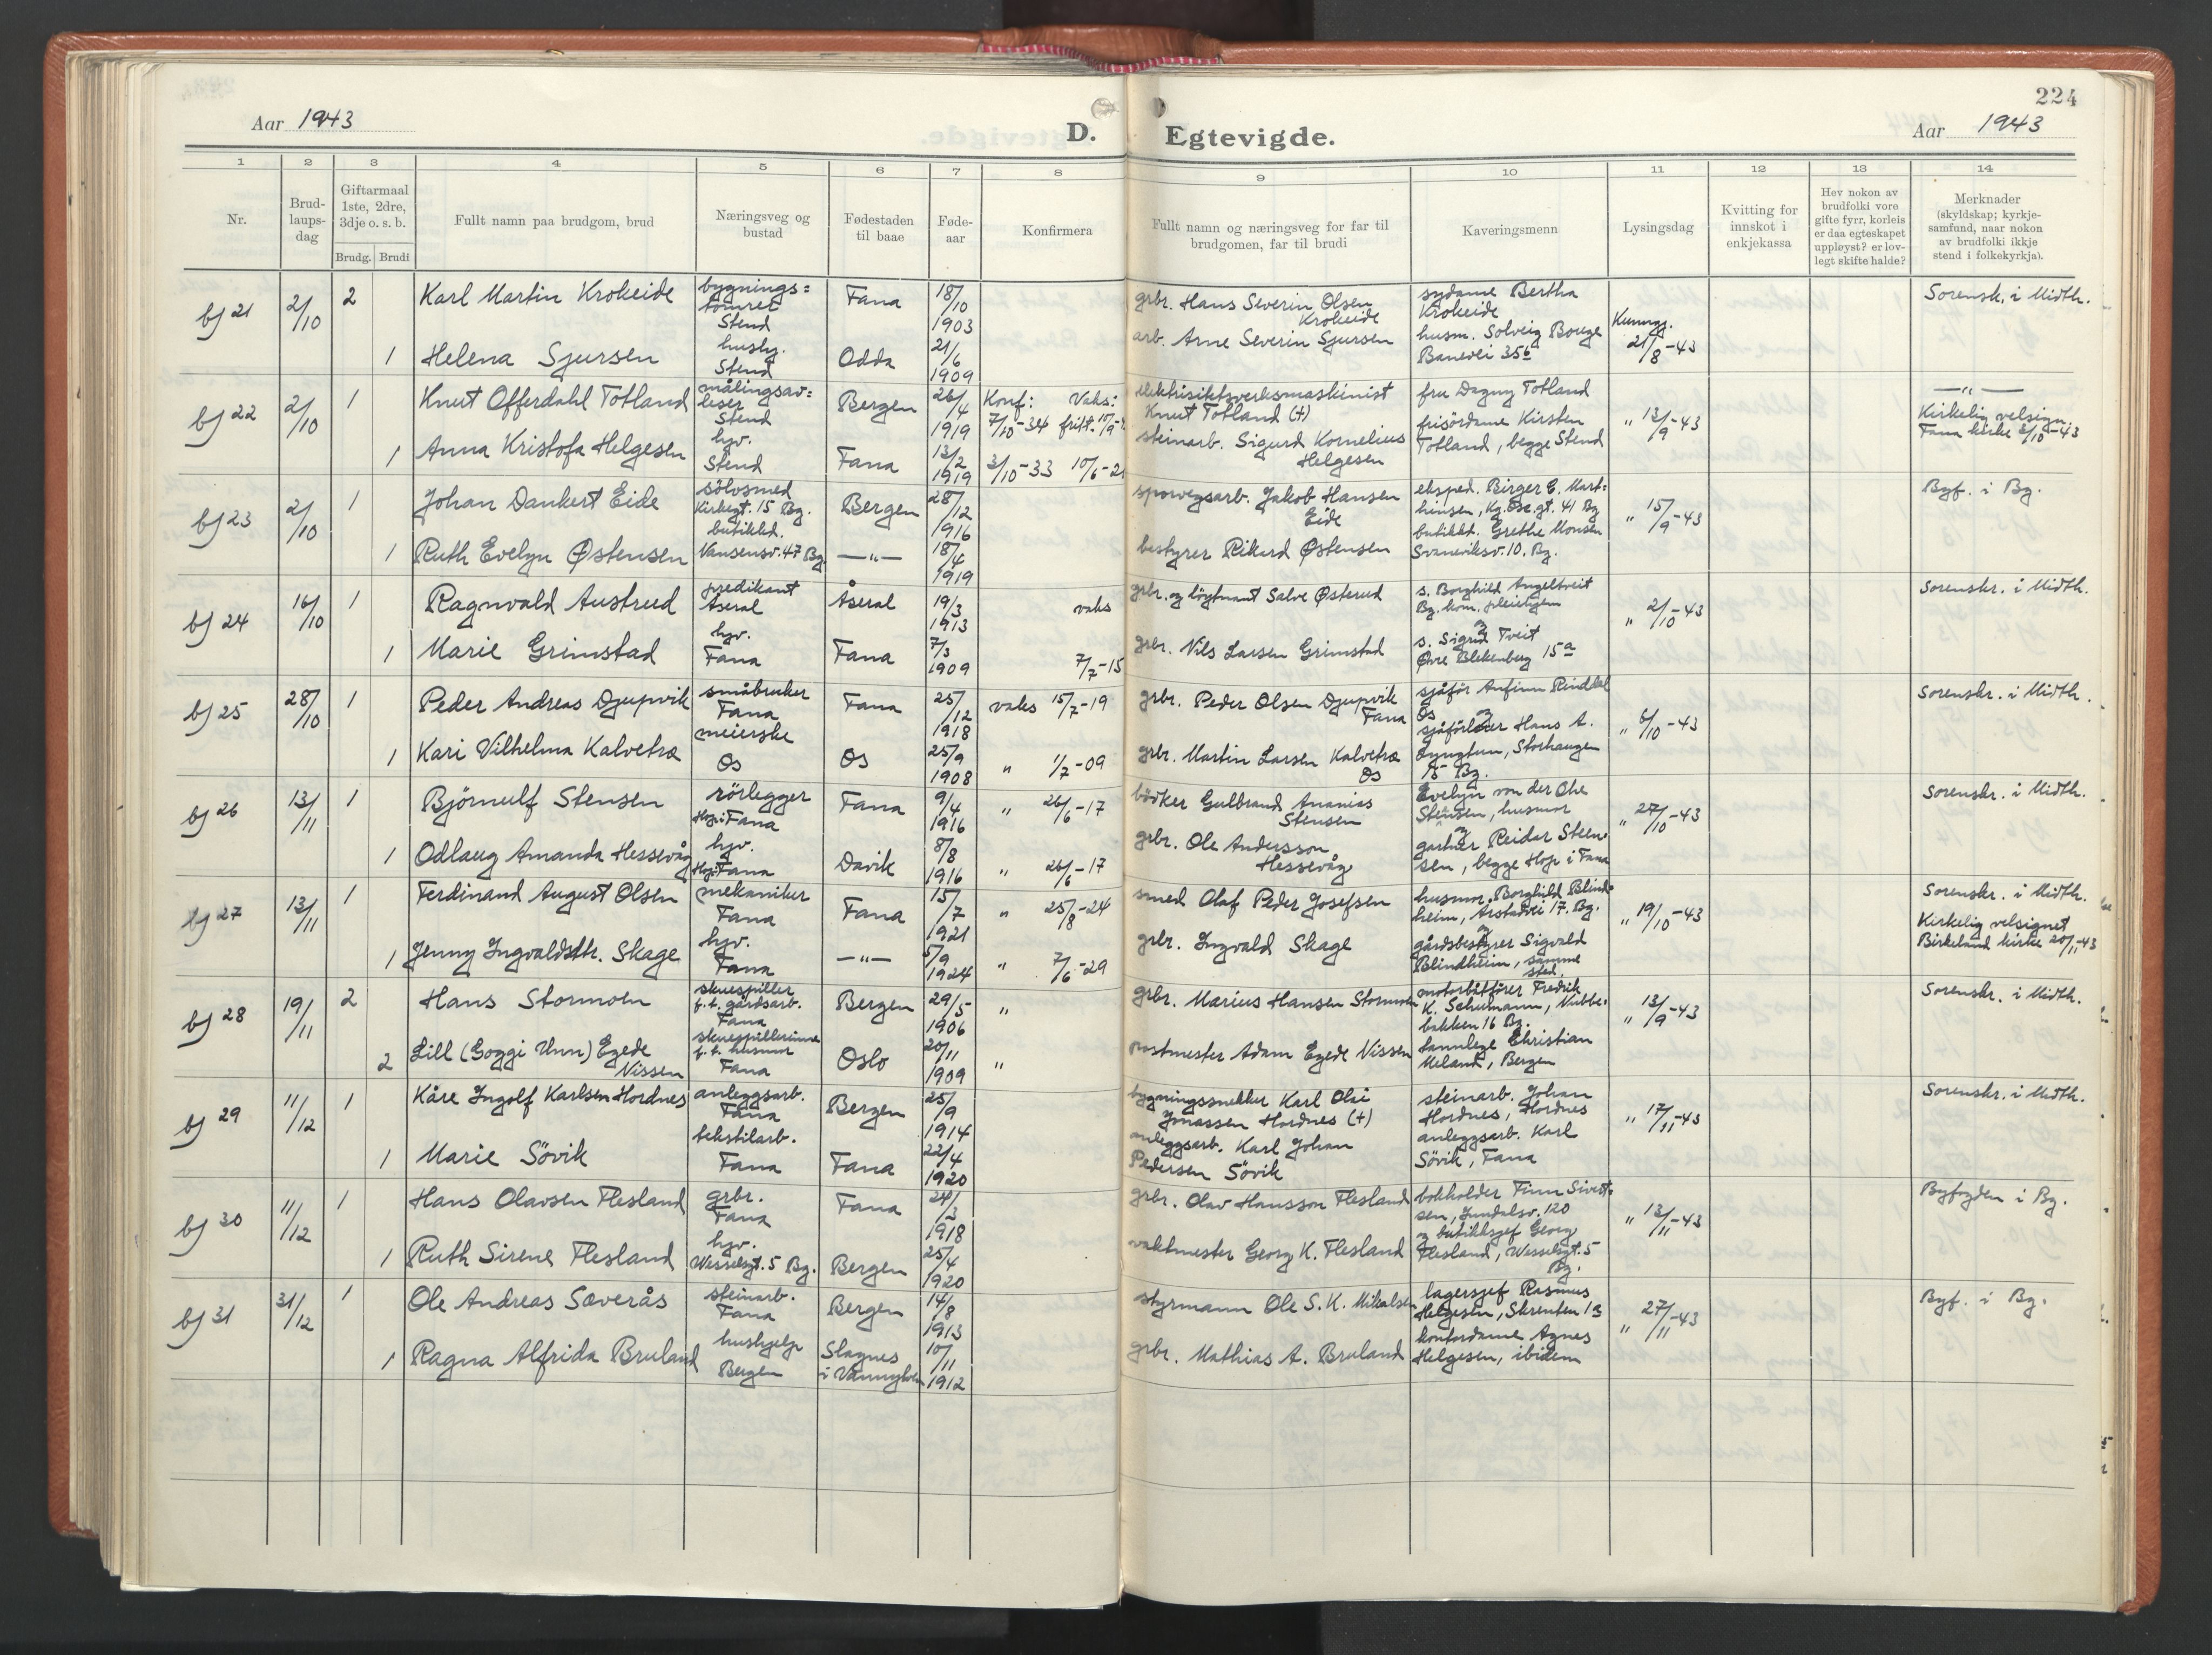 224
Aar 1943
D. Egtevigde.
Aar 1943
1 2 3 4 5 6 7 8 9 10 11 12 13 14
Nr.
Brud-
laups-
dag
Giftarmaal
1ste, 2dre,
3dje o. s. b.
Brudg. Brudi
Fullt namn paa brudgom, brud
Næringsveg og
bustad
Fødestaden
til baae
Føde-
aar
Konfirmera
Fullt namn og næringsveg for far til
brudgomen, far til brudi
Kaveringsmenn
Lysingsdag
Kvitting for
innskot i
enkjekassa
Hev nokon av
brudfolki vore
gifte fyrr, korleis
er daa egteskapet
uppløyst? er lov-
legt skifte halde?
Merknader
(skyldskap; kyrkje-
samfund, naar nokon
av brudfolki ikkje
stend i folkekyrkja).
bj 21
2/10
2
Karl Martin Krokeide
bygnings=
tømrer
Stend
Fana
18/10
1903
grbr. Hans Severin Olsen
Krokeide
sydame Bertha
Krokeide
Kunngj.
21/8-43
Sorensk. i Midth.
1
Helena Sjursen
Stend
Odda
21/6
1909
arb. Arne Severin Sjursen
husm. Solveig Bouge
Banevei 35b
bj 22
2/10
1
Knut Offerdahl Totland
målingsav=
leser
Stend
Bergen
26/4
1919
Konf: Vaks:
7/10-34 fritt.
elektrisitetsverksmaskinist
Knut Totland (+)
fru Dagny Totland
frisördame Kirsten
Totland, begge Stend
" 13/9-43
—"—
Kirkelig velsign.
Fana kirke 3/10-43
1
Anna Kristofa Helgesen
hyv.
Stend
Fana
13/2
1919
3/10-33
steinarb. Sigurd Kornelius
Helgesen
bj 23
2/10
1
Johan Dankert Eide
sölvsmed
Kirkegt. 15 Bg.
Bergen
28/12
1916
sporvegsarb. Jakob Hansen
Eide
eksped. Birger E. Mart=
hinsen, Kg. Osc. gt. 41 Bg
butikkd. Grethe Monsen
Svaneviksv. 10. Bg.
" 15/9-43
Byf. i Bg.
1
Ruth Evelyn Østensen
butikkd.
Nansensv. 47 Bg.
—"—
18/4
1919
bestyrer Rikard Østensen
bj 24
16/10
1
Ragnvald Austrud
predikant
Åseral
Åseral
19/3
1913
vaks
grbr. og løytnant Salve Østerud
s. Borghild Angeltveit
Bg. kom. pleiehjem
og
s. Sigrid Tveit
Øvre Blekenberg 15a
" 2/10-43
Sorenskr. i Midth.
1
Marie Grimstad
hyv.
Fana
Fana
7/3
1909
7/7-15
grbr. Nils Larsen Grimstad
bj 25
28/10
1
Peder Andreas Djupvik
småbruker
Fana
Fana
25/12
1918
vaks 15/7-19
grbr. Peder Olsen Djupvik
Fana
sjåför Anfinn Rinddal
Os og
sjåförlærer Hans A.
Lyngtun, Storhaugen
15 Bg.
" 6/10-43
Sorenskr. i Midth.
1
Kari Vilhelma Kalvetræ
meierske
Os
Os
25/9
1908
" 1/7-09
grbr. Martin Larsen Kalvetræ
Os
bj 26
13/11
1
Björnulf Stensen
rörlegger
Hop i Fana
Fana
9/4
1916
" 26/6-17
bödker Gulbrand Ananias
Stensen
Evelyn von der Ohe
Stensen, husmor
og
gartner Reidar Steen=
sen, begge Hop i Fana
" 27/10-43
Sorenskr. i Midth.
1
Odlaug Amanda Hessevåg
hyv.
Hop i Fana
Davik
8/8
1916
" 26/6-17
grbr. Ole Andersson
Hessevåg
bj 27
13/11
1
Ferdinand August Olsen
mekaniker
Fana
Fana
15/7
1921
" 25/8-24
smed Olaf Peder Josefsen
husmor Borghild Blind=
heim, Årstadvei 17. Bg.
og
gårdsbestyrer Sigvald
Blindheim, samme
sted.
" 19/10-43
Sorenskr. i Midth.
Kirkelig velsignet
Birkeland kirke 20/11-43
1
Jenny Ingvaldsdtr. Skage
hyv.
Fana
—"—
5/9
1924
" 7/6-29
grbr. Ingvald Skage
bj 28
19/11
2
Hans Stormoen
skuespiller
f.t. gårdsarb.
Fana
Bergen
29/5
1906
"
grbr. Marius Hansen Stormoen
motorbåtfører Fredrik
K. Schumann, Nubbe=
bakken 16 Bg.
tannlege Christian
Meland, Bergen
" 13/9-43
Sorenskr. i Midth.
2
Lill (Goggi Unn) Egede
Nissen
skuespillerinne
f.t. husmor
Fana
Oslo
20/11
1909
"
postmester Adam Egede Nissen
bj 29
11/12
1
Kåre Ingolf Karlsen Hordnes
anleggsarb.
Fana
Bergen
25/9
1914
bygningssnekker Karl Olai
Jonassen Hordnes (+)
steinarb. Johan
Hordnes, Hordnes
anleggsarb. Karl
Sövik, Fana
" 17/11-43
Sorenskr. i Midth.
1
Marie Sövik
tekstilarb.
Fana
Fana
22/4
1920
anleggsarb. Karl Johan
Pedersen Sövik
bj 30
11/12
1
Hans Olavsen Flesland
grbr.
Fana
Fana
24/3
1918
grbr. Olav Hansson Flesland
bokholder Finn Sivert=
sen, Lundalsv. 120
og butikksjef Georg
Flesland, Wesselsgt. 5
Bg.
" 13/11-43
Byfogden i Bg.
1
Ruth Sirene Flesland
hyv.
Wesselsgt. 5 Bg.
Bergen
25/4
1920
vaktmester Georg K. Flesland
bj 31
31/12
1
Ole Andreas Sæverås
steinarb.
Fana
Bergen
14/8
1913
styrmann Ole S. K. Mikalsen
lagersjef Rasmus
Helgesen, Skrenten 13
kontordame Agnes
Helgesen, ibidem
" 27/11-43
Byf. i Bg.
1
Ragna Alfrida Bruland
hushjelp
Bergen
10/11
1912
grbr. Mathias A. Bruland